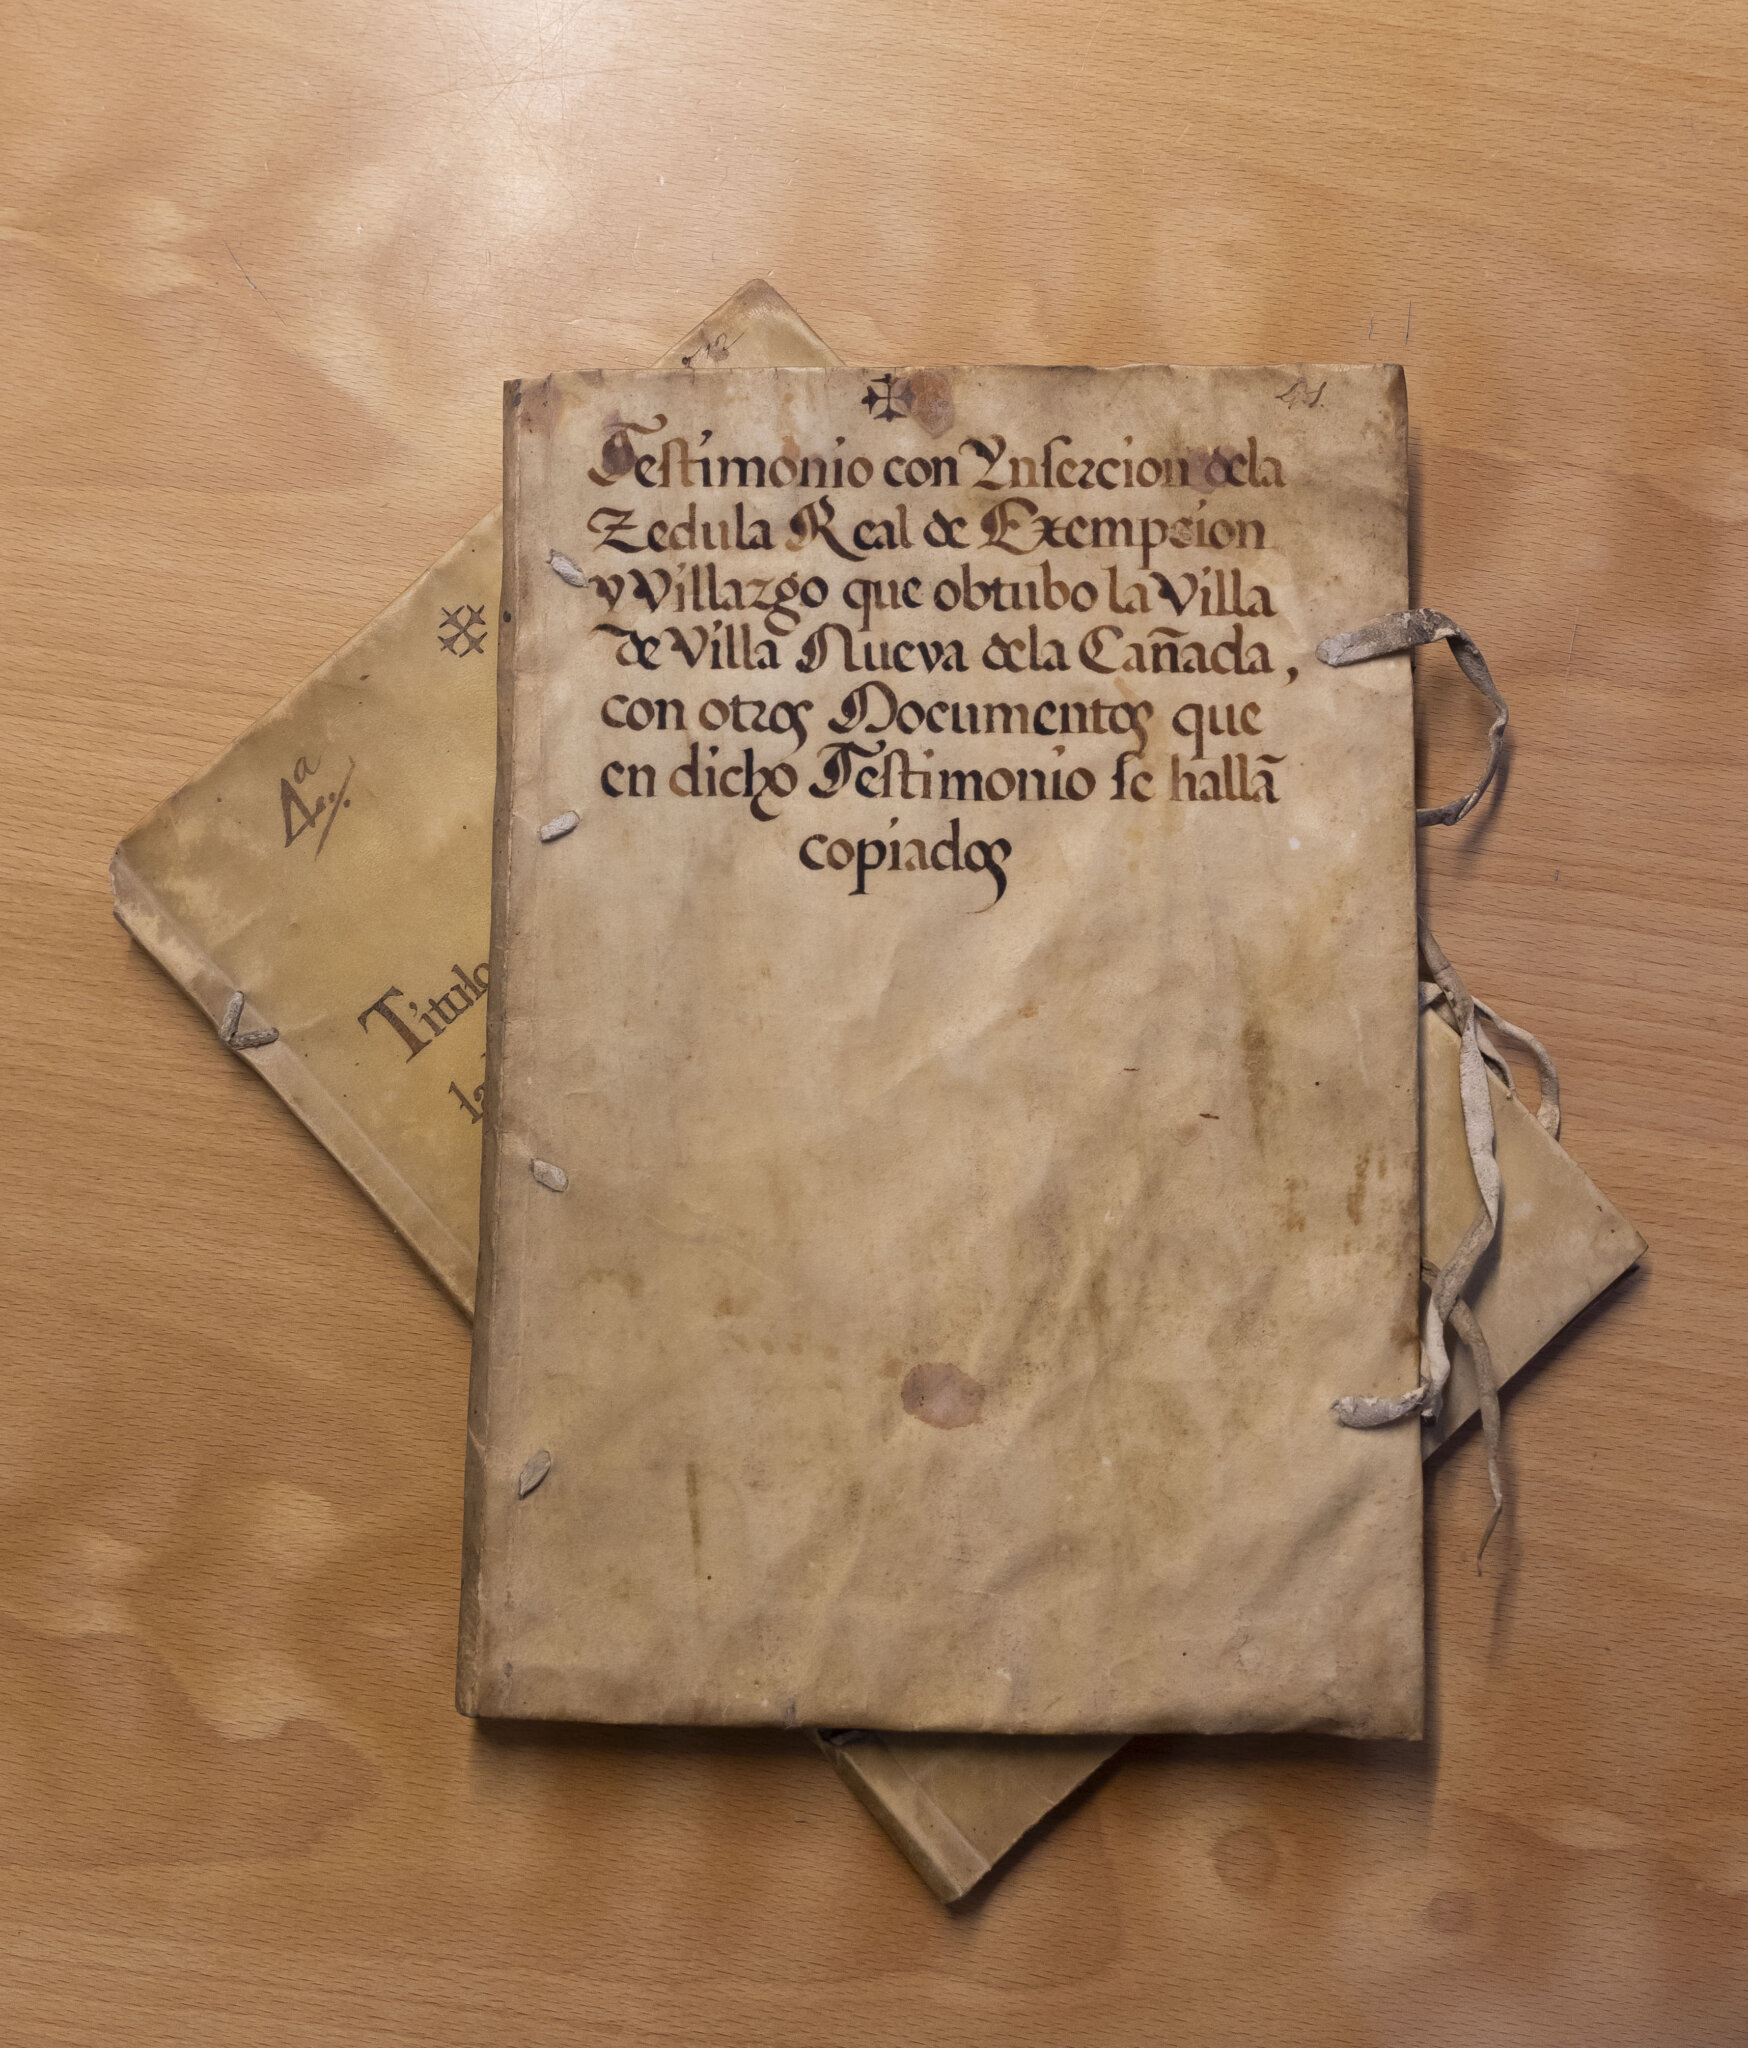 Testimonio con Ynsercion dela
Zedula Real de Exempcion
y Villazgo que obtubo la Villa
de Villa Nueva dela Cañada,
con otros Documentos que
en dicho Testimonio se hallã
copiados
4ª
Titulo
la